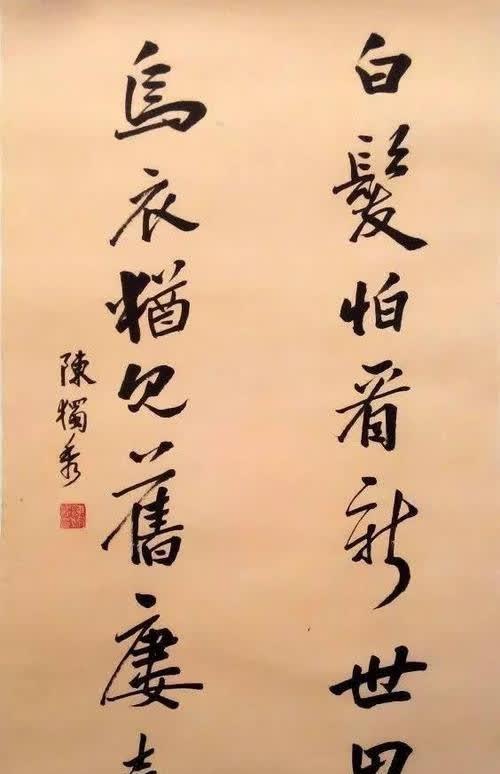 白髮怕看新世界
烏衣猶見舊廔
陳獨秀